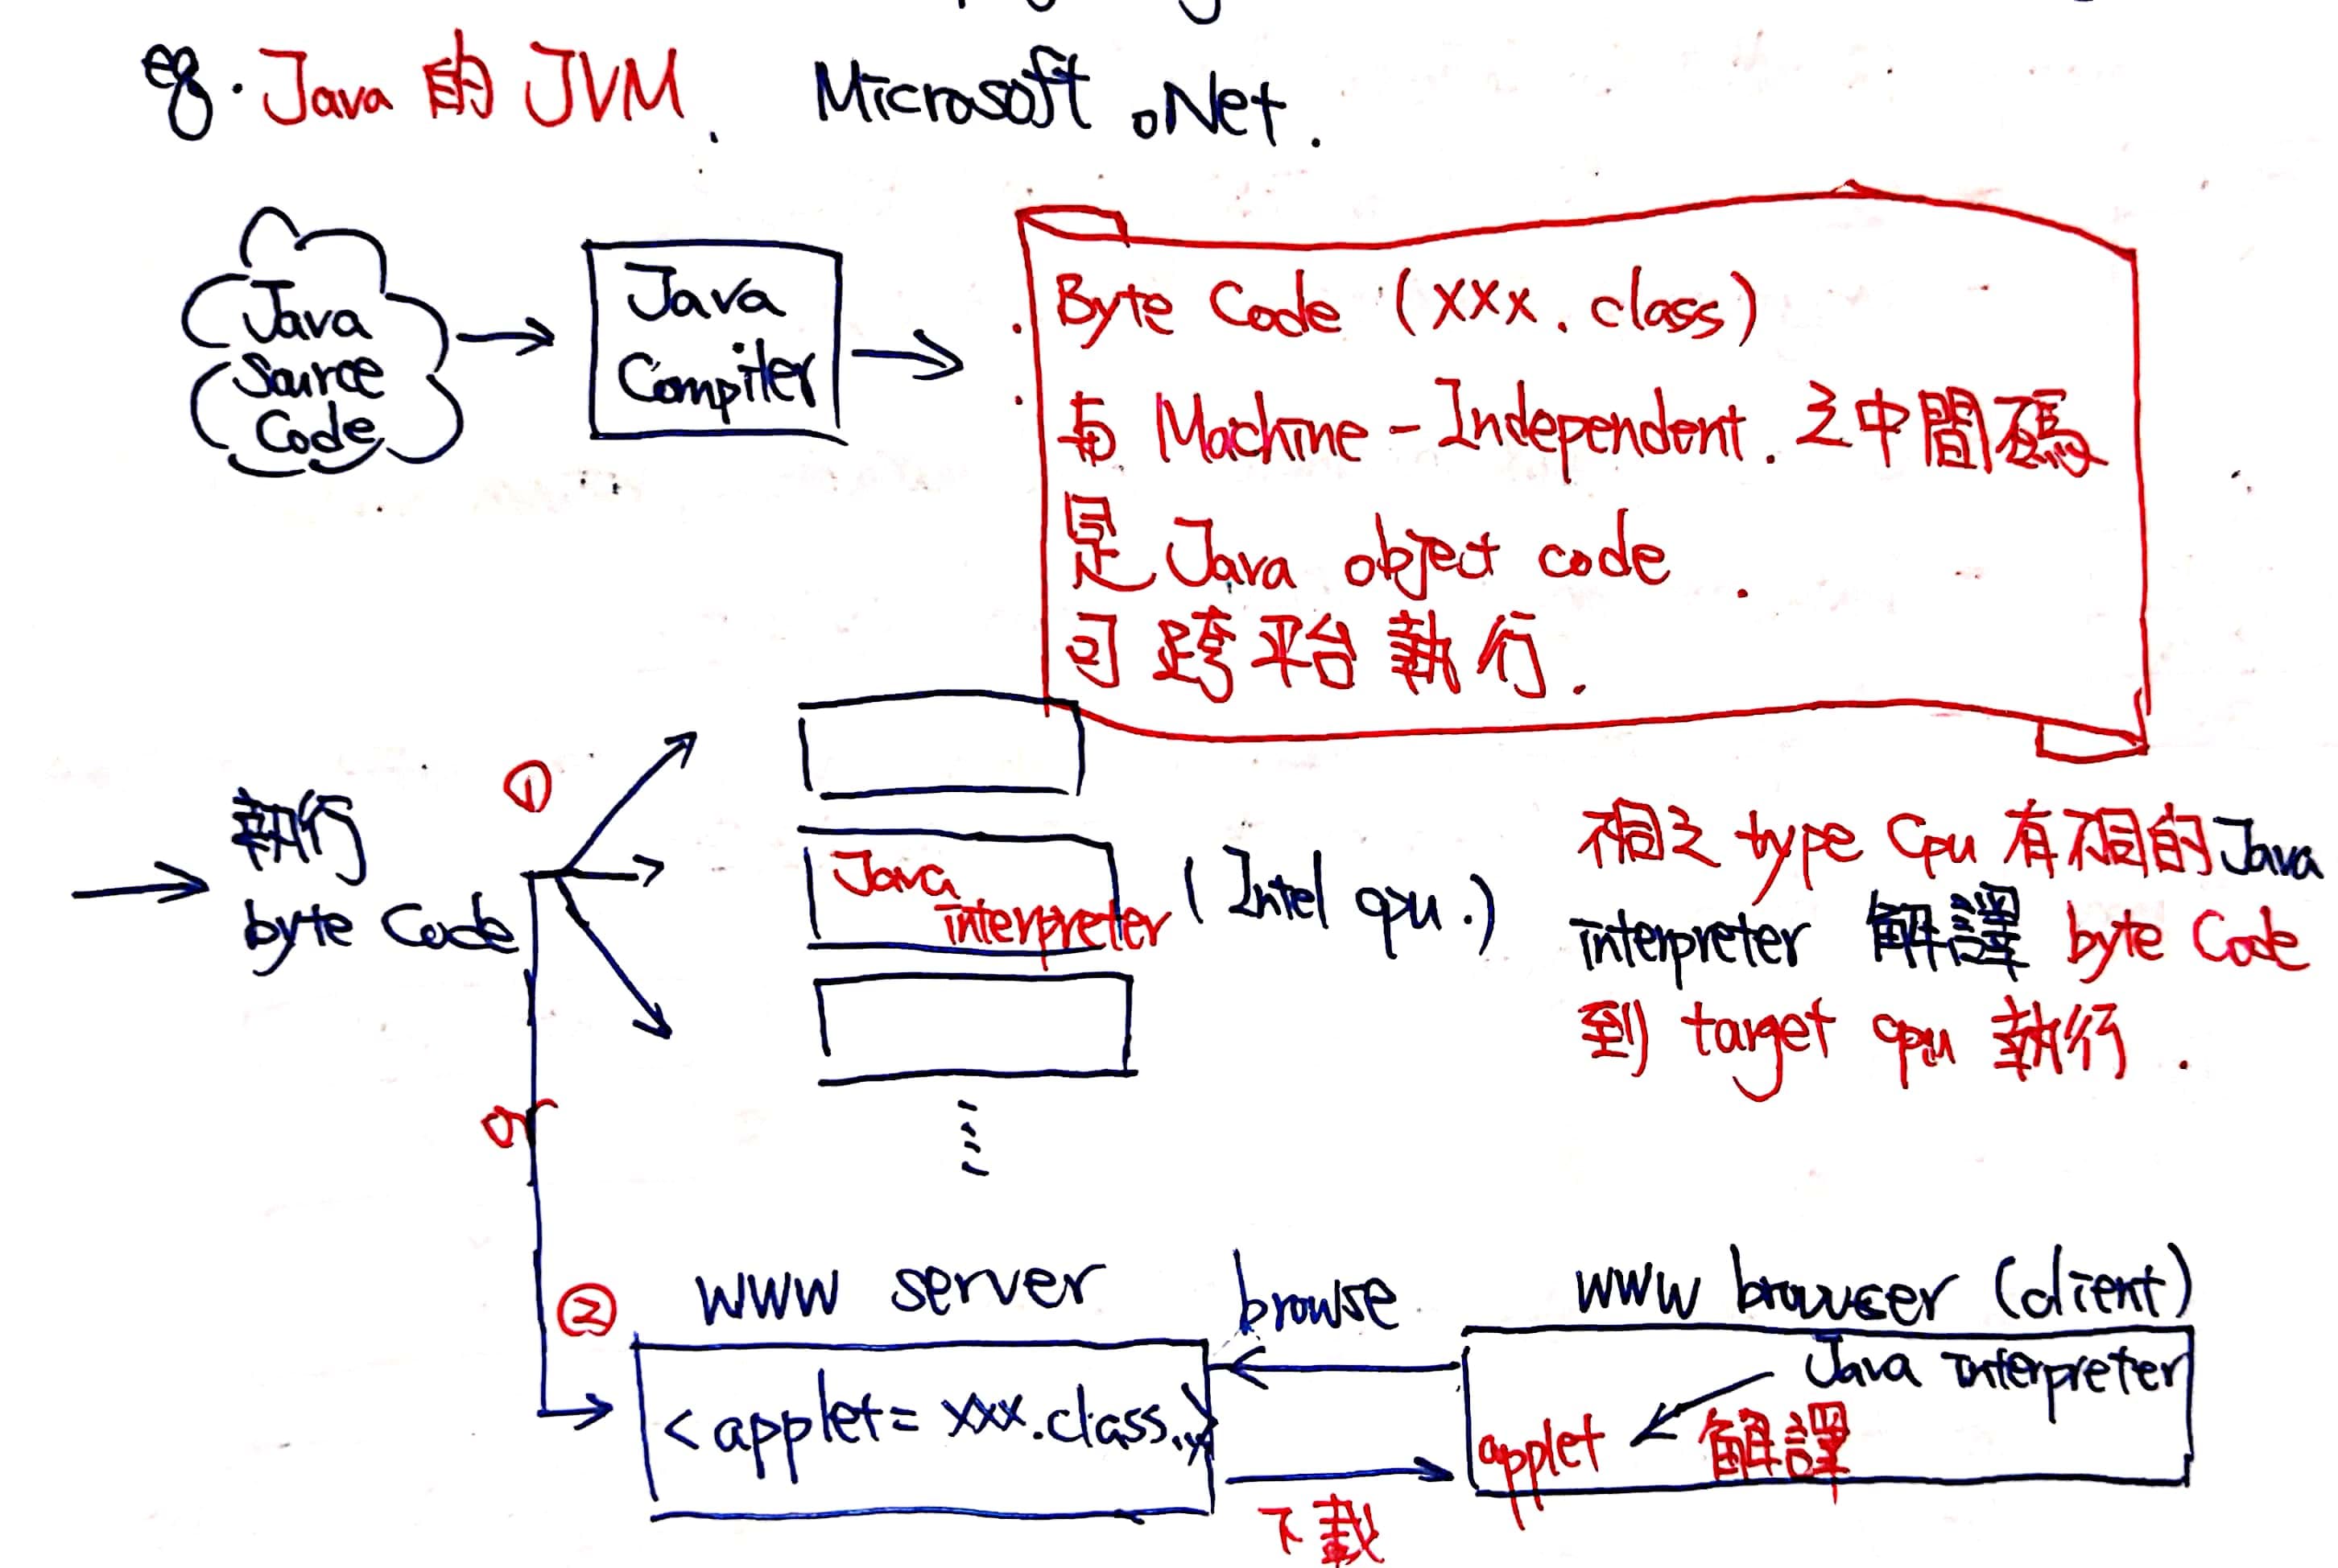 eg. Java 的 JVM. Microsoft .Net.
Java
Source
Code
Java
Compiler
Byte Code (xxx.class)
Machine-Independent. 之中間碼
是 Java object code.
可跨平台執行.
執行
byte Code
①
Java
interpreter
(Intel cpu.)
不同之 type Cpu 有不同的 Java
interpreter 解譯 byte Code
到 target cpu 執行.
or
②
www server
browse
www browser (client)
<applet= xxx.class.>
Java interpreter
applet
解譯
下載